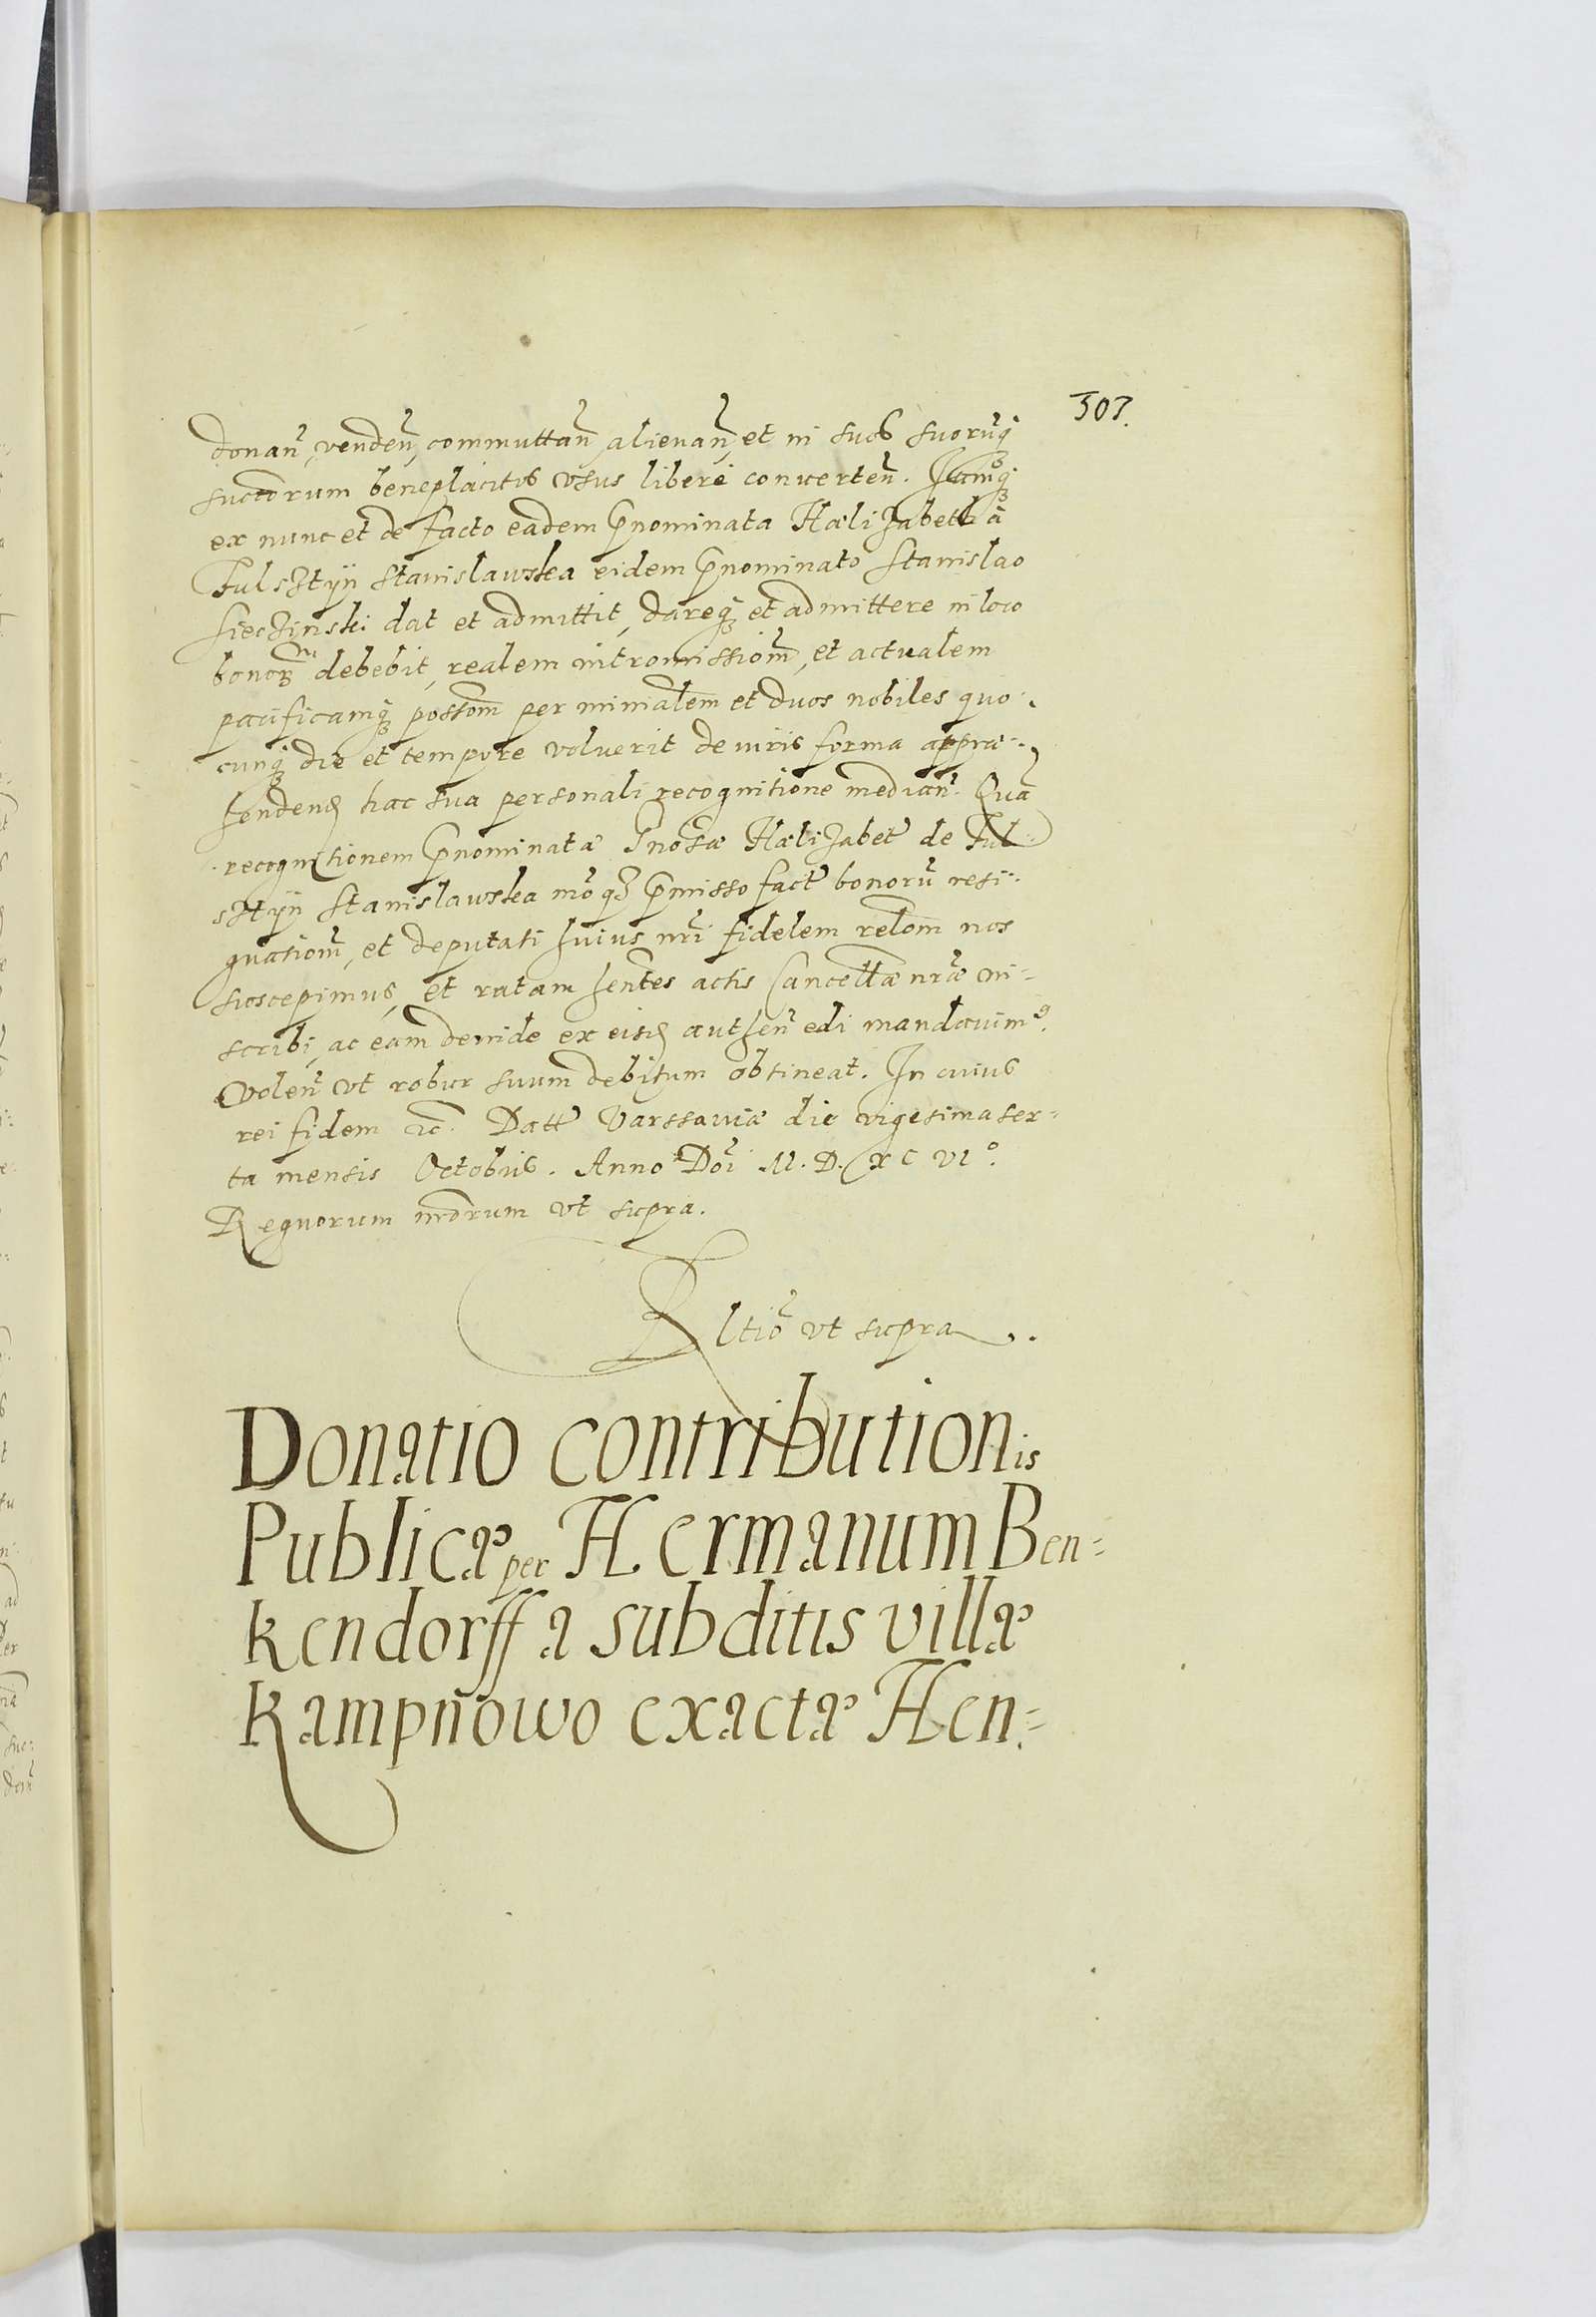 307.
donan̄, venden̄, commuttan̄, alienan̄, et in suos suorūq̢
succorum beneplacitos vsus liberè conuerten̄. Iamq̢
ex nunc et de facto eadem p̄nominata Hælizabeth à
Fulsztyn Stanislawska eidem p̄nominato Stanislao
Sieczinski dat et admittit, dareq̢ et admittere in loco
bonorum debebit, realem intromissiom̄, et actualem
pacificamq̢ possom̄ per minialem et duos nobiles quo
cunq̢ die et tempore voluerit de iuris forma appræ
henden̄ hac sua personali recognitione median̄. Quā
recognitionem p̄nominatæ Hælizabet de Ful
sztyn Stanislawska mō p̄misso fact bonorū resi
gnatiom̄, et deputati huius nr̄i fidelem relom̄ nos
suscepimus, et ratam hentes actis Cancellæ nr̄æ in=
scribi, ac eam deinde ex eisd authen̄ edi mandauim9.
Volen̄ vt robur suum debitum obtineat. In cuius
rei fidem etc. Datt Varssauiæ die vigesima sex=
ta mensis Octobris. Anno Doī M. D. XC VI°.
Regnorum nrōrum vt supra.
Rltiō vt supra.
Donatio contributionis
Publicæ per Hermanum Ben=
kendorff a subditis villæ
Kampnowo exactæ Hen=